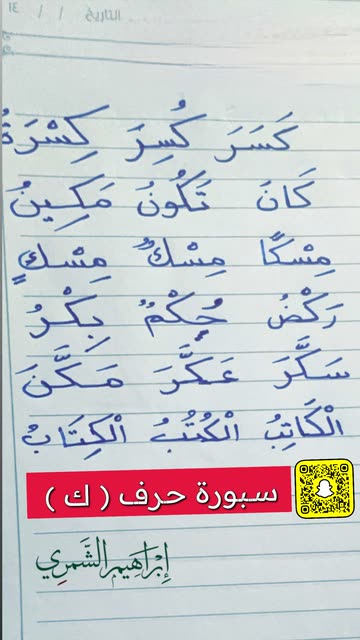 التاريخ / / ١٤
كَسَرَ كُسِرَ كِسْرَةٌ
كَانَ تَكُونُ مَكِينٌ
مِسْكًا مِسْكٌ مِسْكٍ
رَكْضٌ حُكْمٌ بِكْرٌ
سَكَّرَ عَكَّرَ مَكَّنَ
الْكَاتِبُ الْكُتُبُ الْكِتَابُ
سبورة حرف ( ك )
إبراهيم الشمري